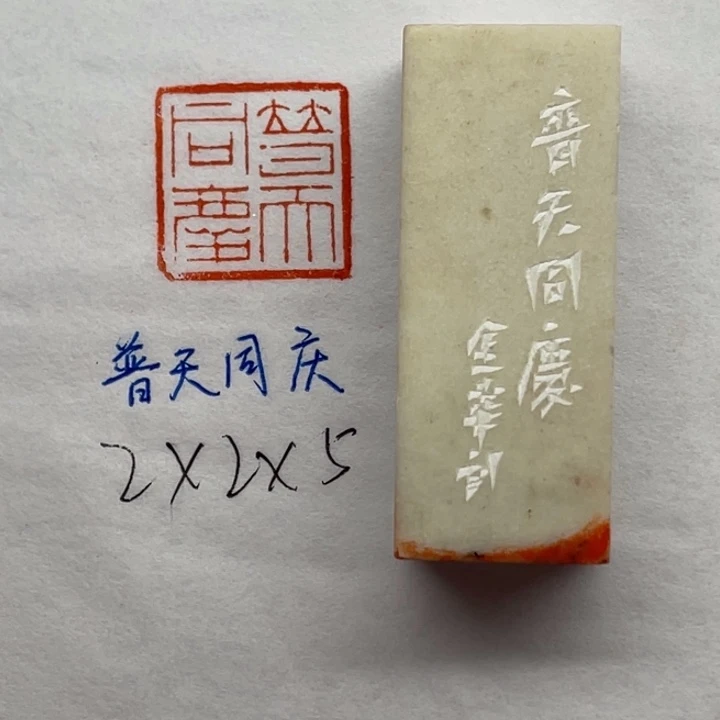 普天
同慶
普天同庆
2×2×5
普天同慶
金華刻